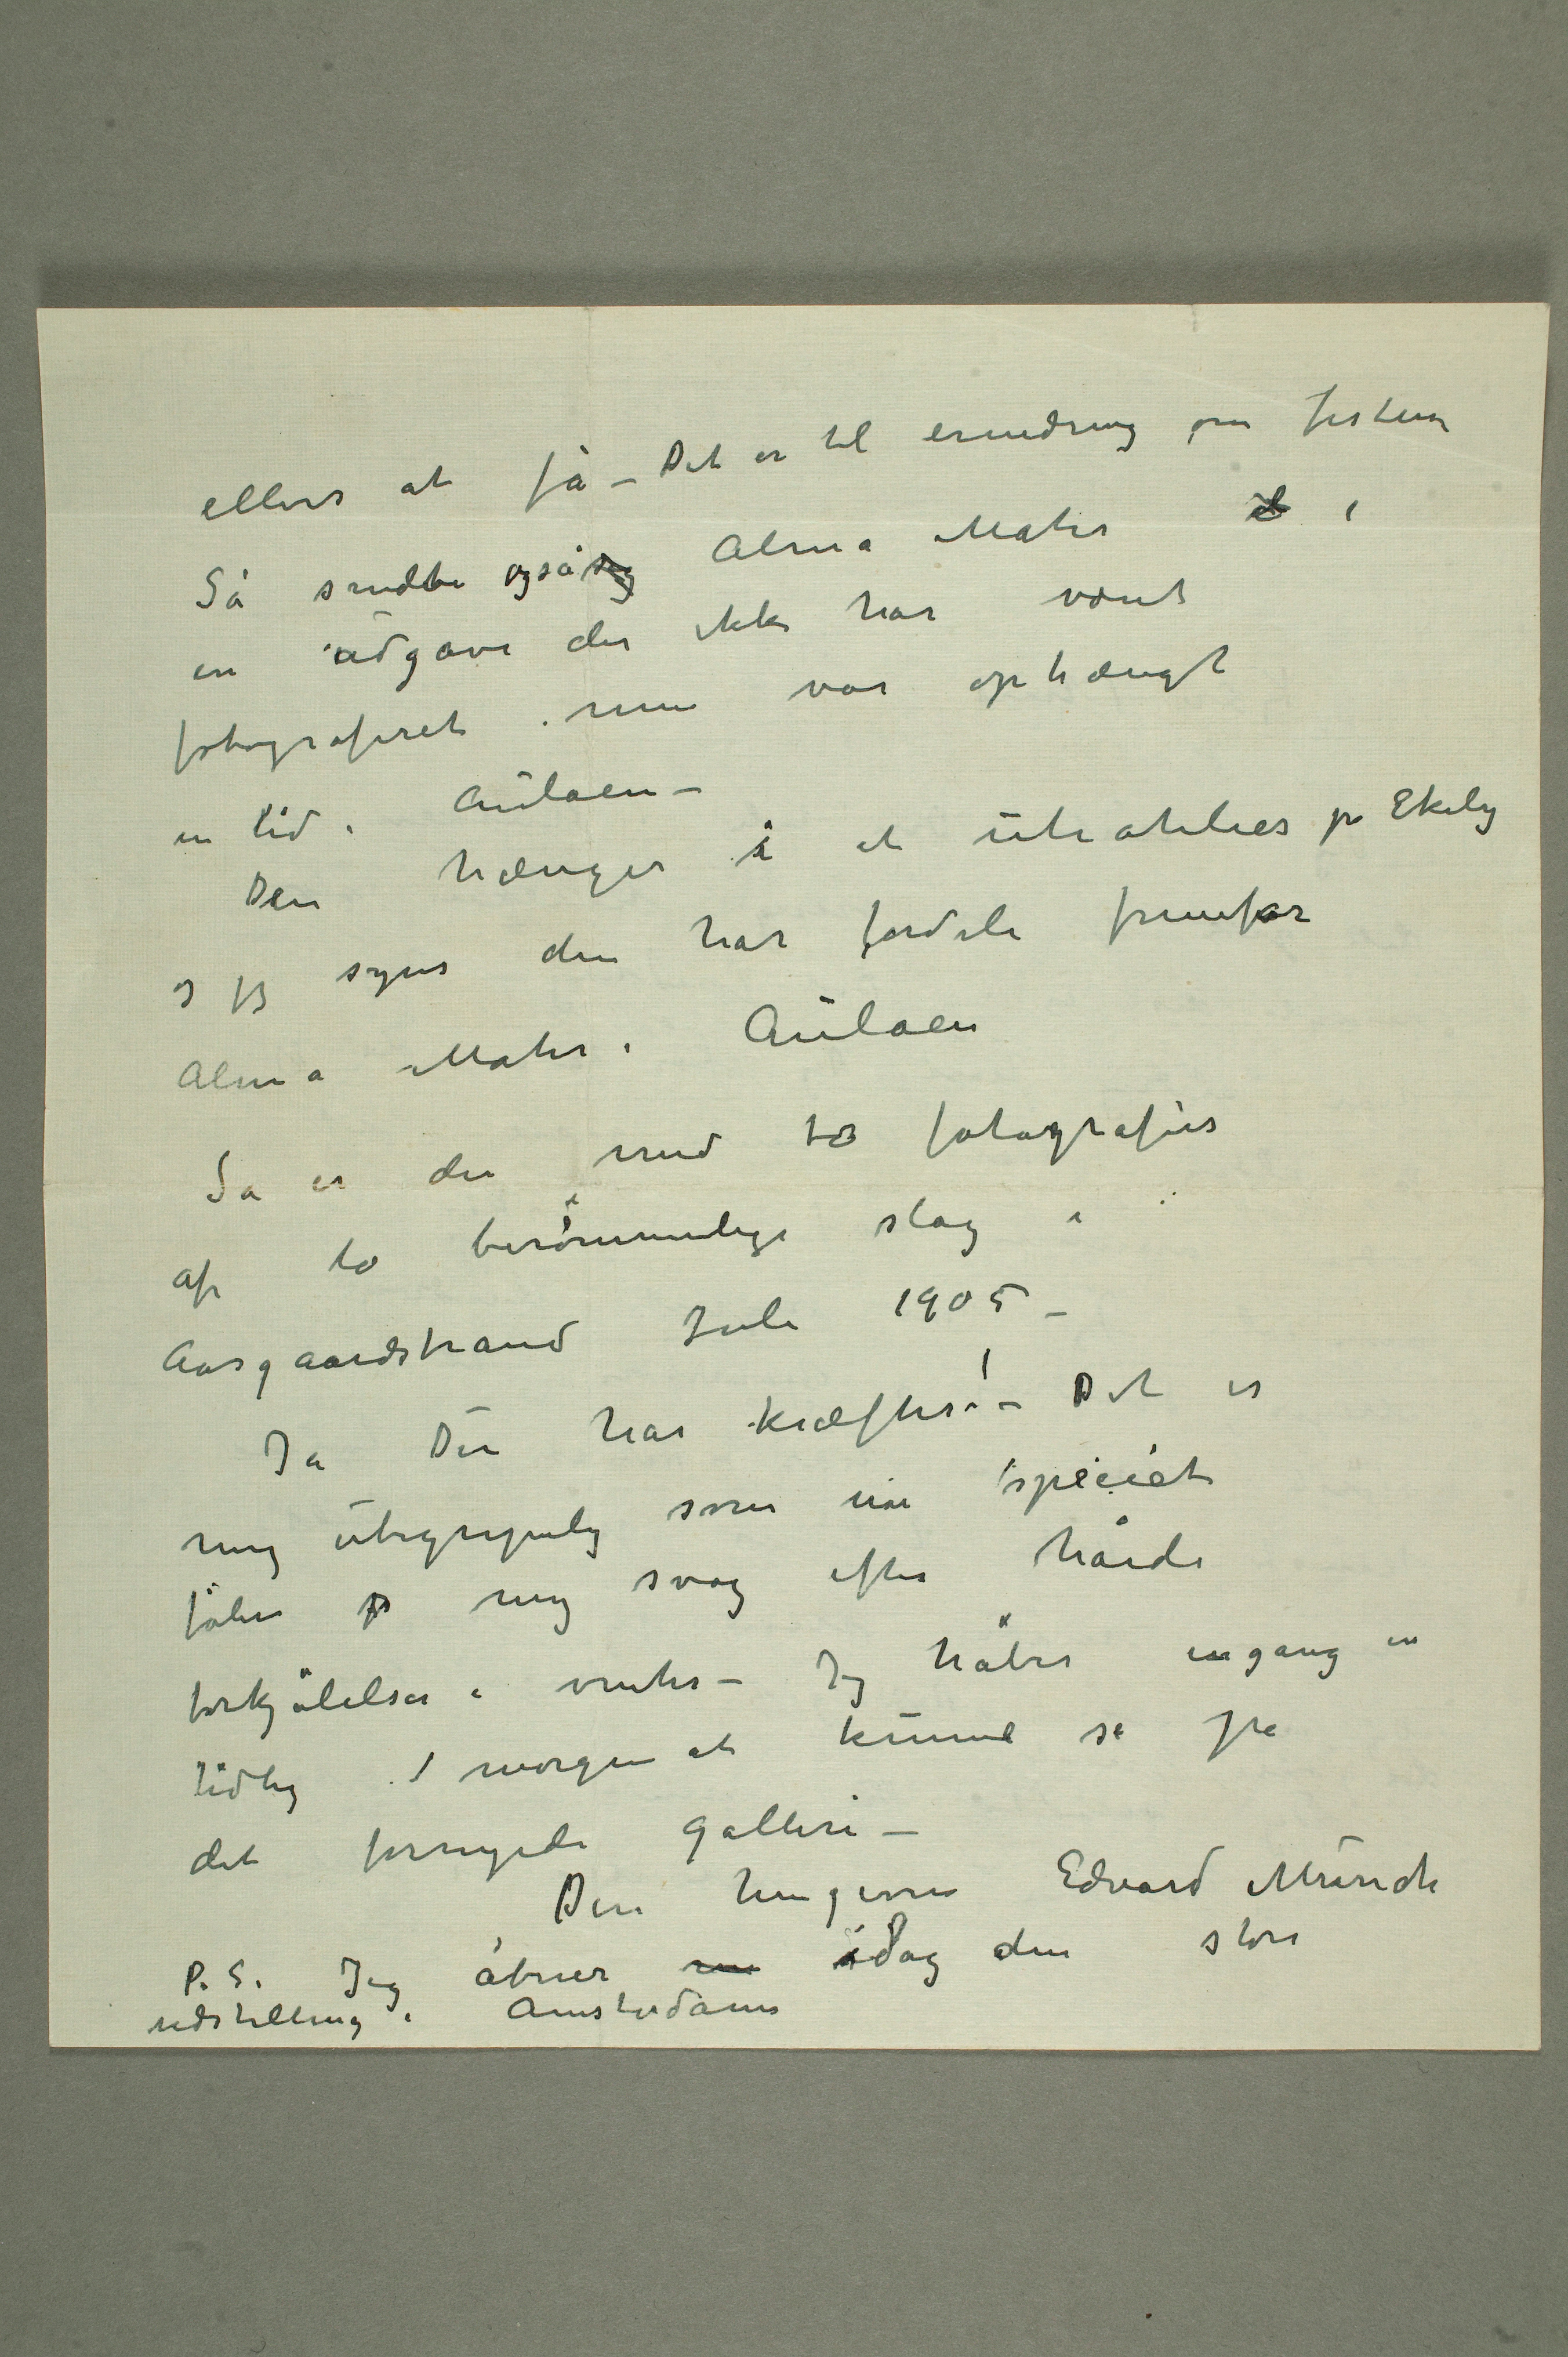 ellers at få – Det er til erindring om festen
Så sendte også Alma Mater i
en udgave der ikke har været
fotograferet men var ophængt
en tid i Aulaen –
Den hænger i et uteatelier på Ekely
og jeg synes den har fordele fremfor
Alma Mater i Aulaen
Så er der med to fotografier
af to berømmelige slag i
Aasgaardstrand Juli 1905 –
Ja Du har kræfter! – Det er
mig ubegripelig som nu speciet
føler jeg mig svag efter hårde
forkjølelser i vinter – Jeg håber engang en
tidlig morgen at kunne se på
det fornyede galleri –
Din hengivne Edvard Munch
P.S. Jeg åbner idag den store
udstilling i Amsterdam